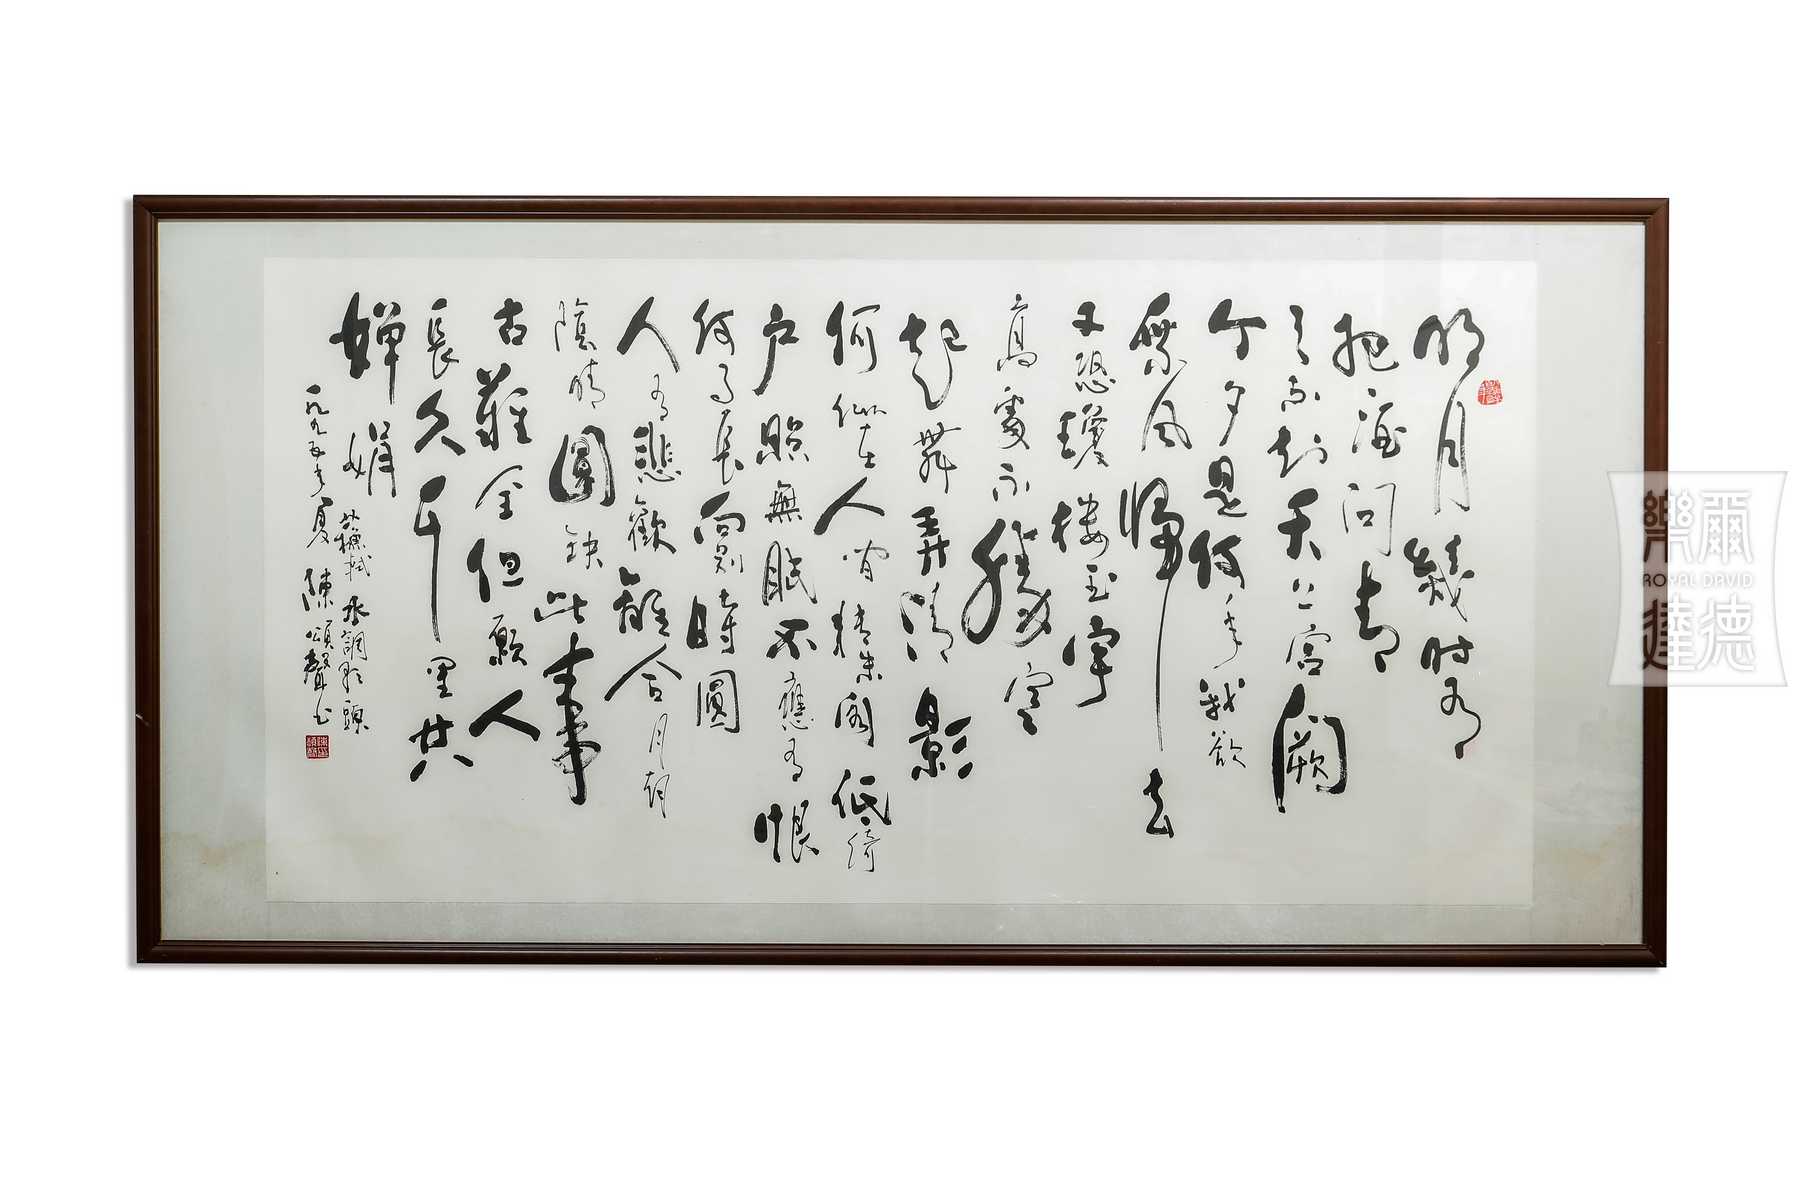 明月幾時有
把酒問青
天不知天上宮闕
今夕是何年我欲
乘风歸去
又恐瓊樓玉宇
高處不勝寒
起舞弄清影
何似在人間轉朱閣低綺
户照無眠不應有恨
何事長向别時圓
人有悲歡離合月
陰晴圓缺此事
古難全但願人
長久千里共
嬋娟
蘇軾水調歌頭
一九九五年夏陳頌聲书
樂爾
ROYAL DAVID
達德